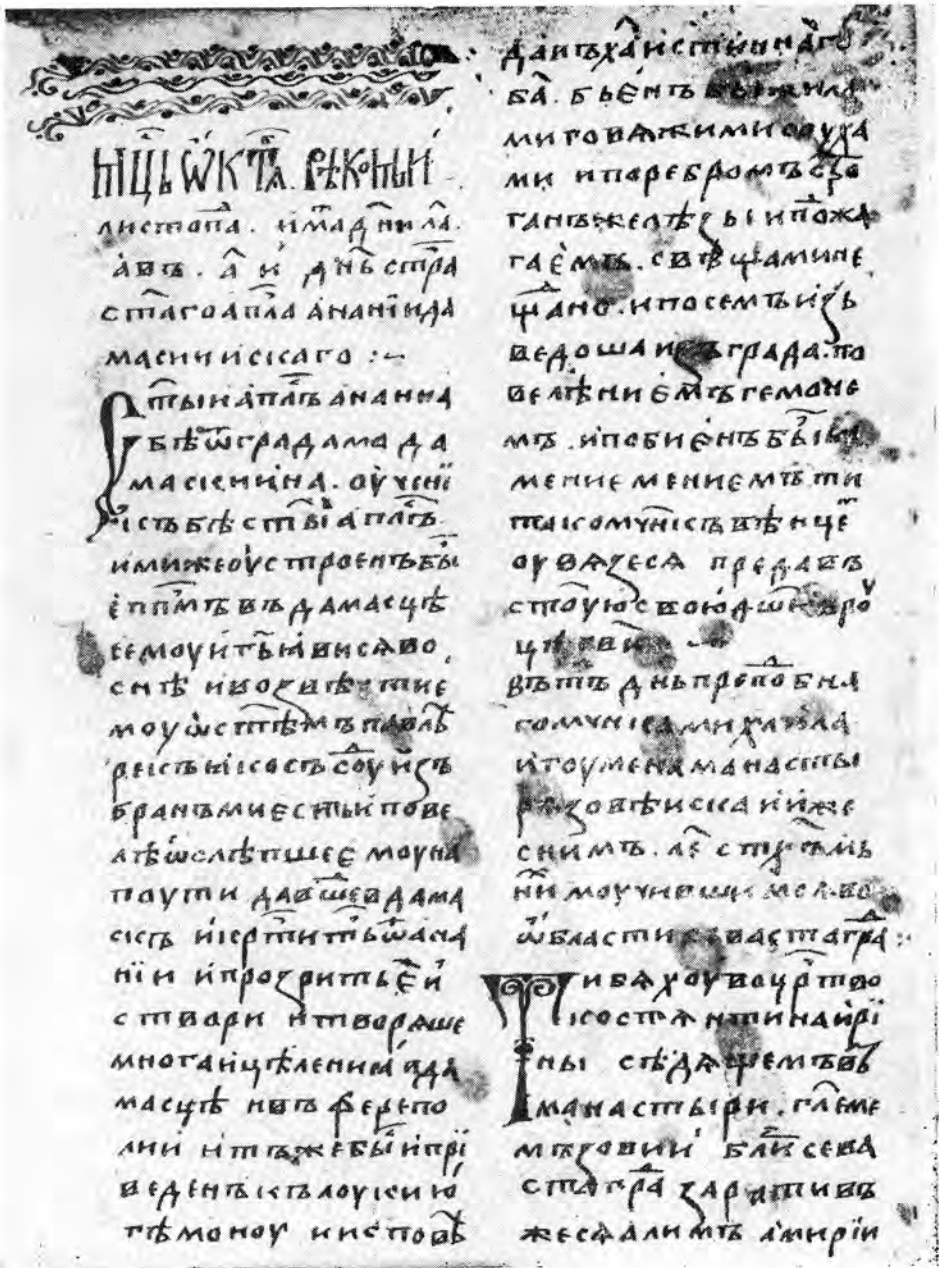 мць ѡктѧ. рекомыи
листопа. имаднила.
авъ. а и днь стра
стагоапла ананиида
масниискаго :~
Стыиапⷭлъананиа
бѣѿградамада
маскиина. оучнї
къбѣствіапⷭлъ
имижеоустроенъбы
еппмъвъдамасцѣ
семоуигьꙗвисѧво
снѣ ивоꙁвѣстие
моуѡстѣмъпавлѣ
рекъꙗкосъсоуиꙁъ
бранъмиестьипове
лѣѡслѣпшеемоуна
поути давшевдама
скъ икртитьѿана
нїи ипроꙁритьеи
створи итворѧше
многаицѣлениꙗвда
масцѣ ивъ ферепо
лии итъжебыипрї
веденъкълоукию
гѣмоноу ииспове
даиъхаистиннаго
ба. бьенъ жила
миговѧжимисоуха
ми ипоребромъ
ганъжелѣꙁыипожа
гаемъ. свѣщамине
щано. ипосемъиꙁъ
ведошаиꙁъграда. по
велѣниемъгемоне
мъ. ипобиенъбыка
мениемениемъ ти
такомчнкъвѣнце
оувѧꙁесѧ предавъ
стоуюсвоюдш

вътъ днь преподбна
гомчнкамихаила
игоуменаманасты
рѧꙁовѣискаииже
снимъ. ле стртъмь
ни моучивши
ѡбластисевастагра :·
Ти бѧхоувоцртво
костѧнтинаирї
ны сѣдѧщемъвъ
манастыри. глеме
мъꙁовии блиꙁсева
стагра ꙁаративъ
жесѧалимъ амирїи